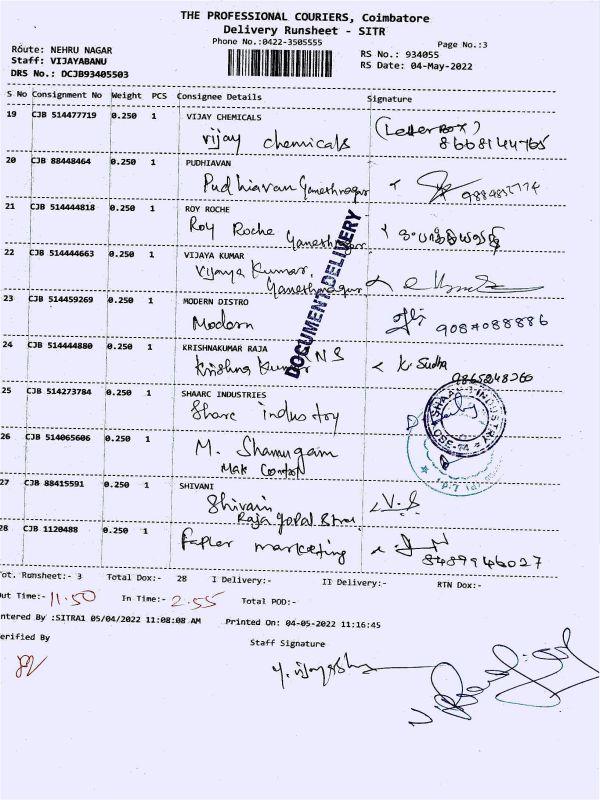 THE PROFESSIONAL COURIERS, Coimbatore
Delivery Runsheet - SITR
Phone No.:0422-3505555
Page No.:3
Route: NEHRU NAGAR
RS No.: 934055
Staff: VIJAYABANU
RS Date: 04-May-2022
DRS No.: DCJB93405503
S No Consignment No Weight PCS Consignee Details Signature
19 CJB 514477719 0.250 1 VIJAY CHEMICALS
vijay chemicals (Letter Box) 8668144765
20 CJB 88448464 0.250 1 PUDHIAVAN
Pudhiavan Ganeshnagar
21 CJB 514444818 0.250 1 ROY ROCHE
Roy Roche Ganeshnagar
22 CJB 514444663 0.250 1 VIJAYA KUMAR
Vijaya Kumar, Ganeshnagar
23 CJB 514459269 0.250 1 MODERN DISTRO
Modern 9087088886
24 CJB 514444880 0.250 1 KRISHNAKUMAR RAJA
Krishna Kumar N S K. Sudha
DOCUMENT DELIVERY
25 CJB 514273784 0.250 1 SHAARC INDUSTRIES
Sharc industry
26 CJB 514065606 0.250 1 M. Shanugam
27 CJB 88415591 0.250 1 SHIVANI
Shivain V.S.
Raja gopal
28 CJB 1120488 0.250 1 marketing 8489946027
Tot. Runsheet:- 3 Total Dox:- 28 I Delivery:- II Delivery:- RTN Dox:-
Out Time:- 11.50 In Time:- 2.55 Total POD:-
Entered By :SITRA1 05/04/2022 11:08:08 AM Printed On: 04-05-2022 11:16:45
Verified By Staff Signature